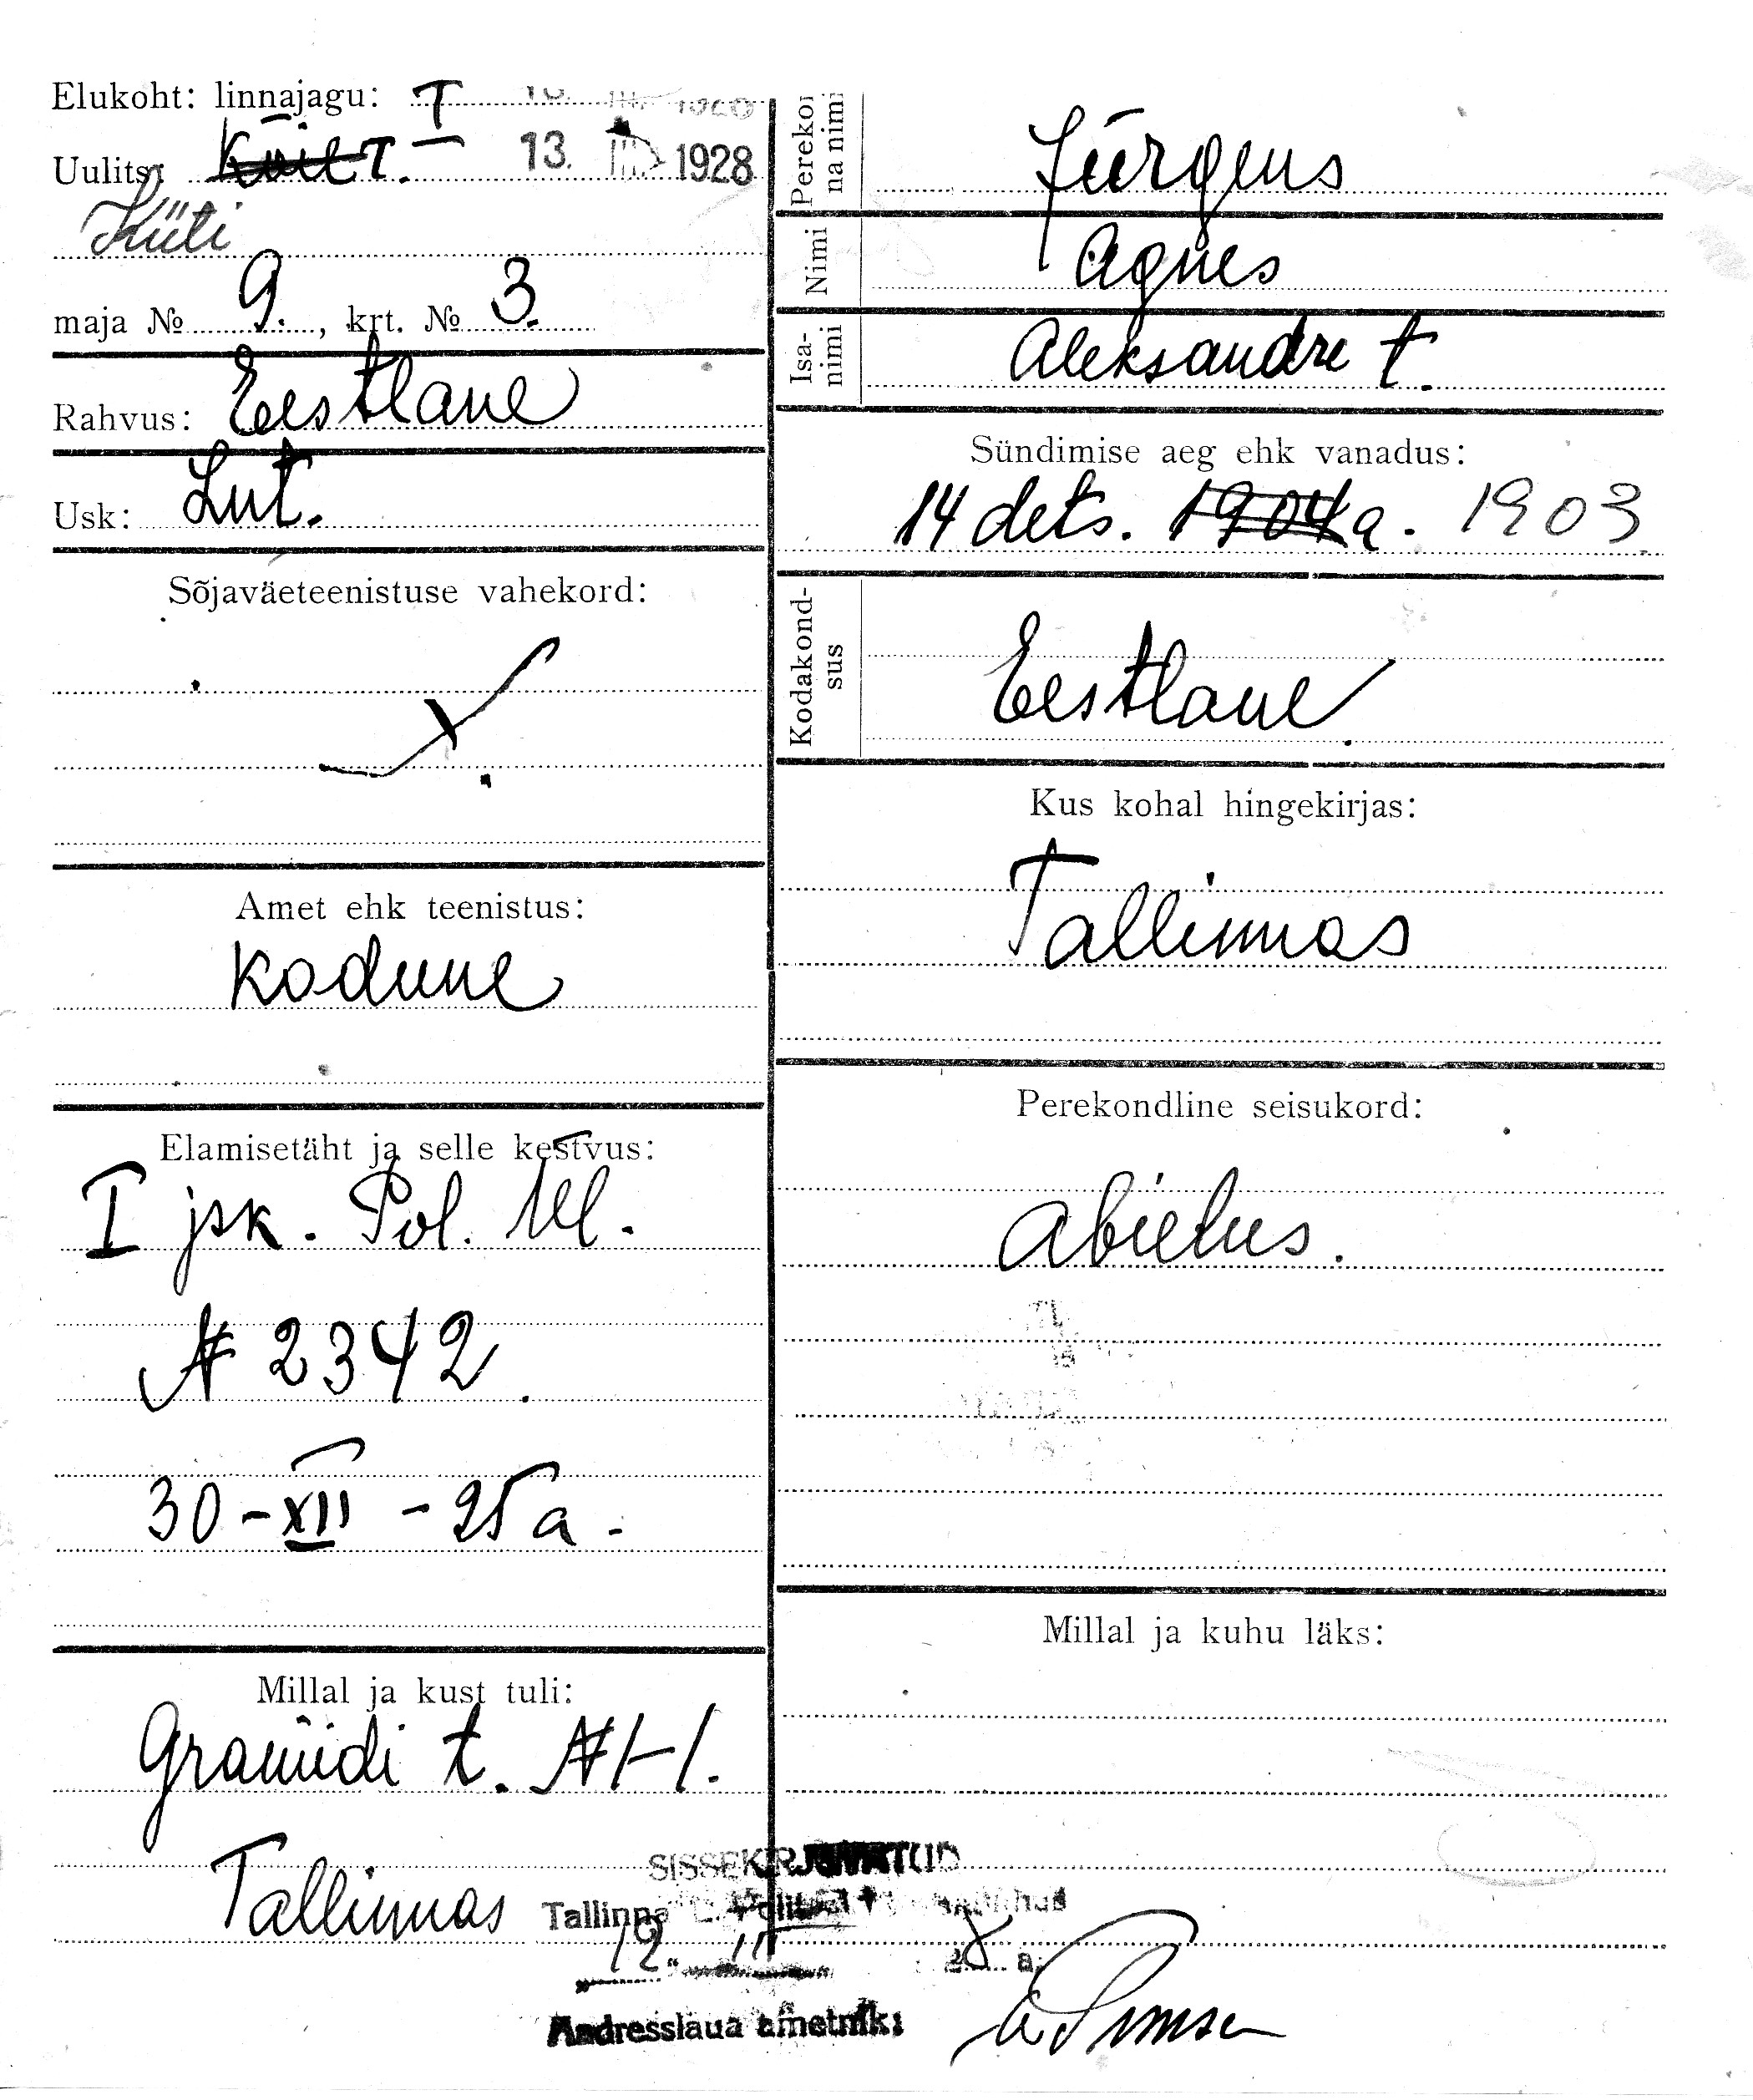 Elukoht: linnajagu: I
Uulits: T.
13. III 1928
Küti
maja № 9., krt. № 3.
Rahvus: Eestlane
Usk: Lut.
Sõjaväeteenistuse vahekord:
Amet ehk teenistus:
Kodune
Elamisetäht ja selle kestvus:
I jsk. Pol.
№ 2342.
30-XII-25 a.
Millal ja kust tuli:
Graniidi t. № 1-1.
Tallinnas
Perekonna nimi
Jürgens
Nimi
Agnes
Isa-nimi
Aleksandre t.
Sündimise aeg ehk vanadus:
14 dets. 1904 a. 1903
Kodakond-sus
Eestlane.
Kus kohal hingekirjas:
Tallinnas
Perekondline seisukord:
abielus.
Millal ja kuhu läks:
SISSEKIRJUTATUD
Tallinna
12. III 28 a.
Aadresslaua ametnik: